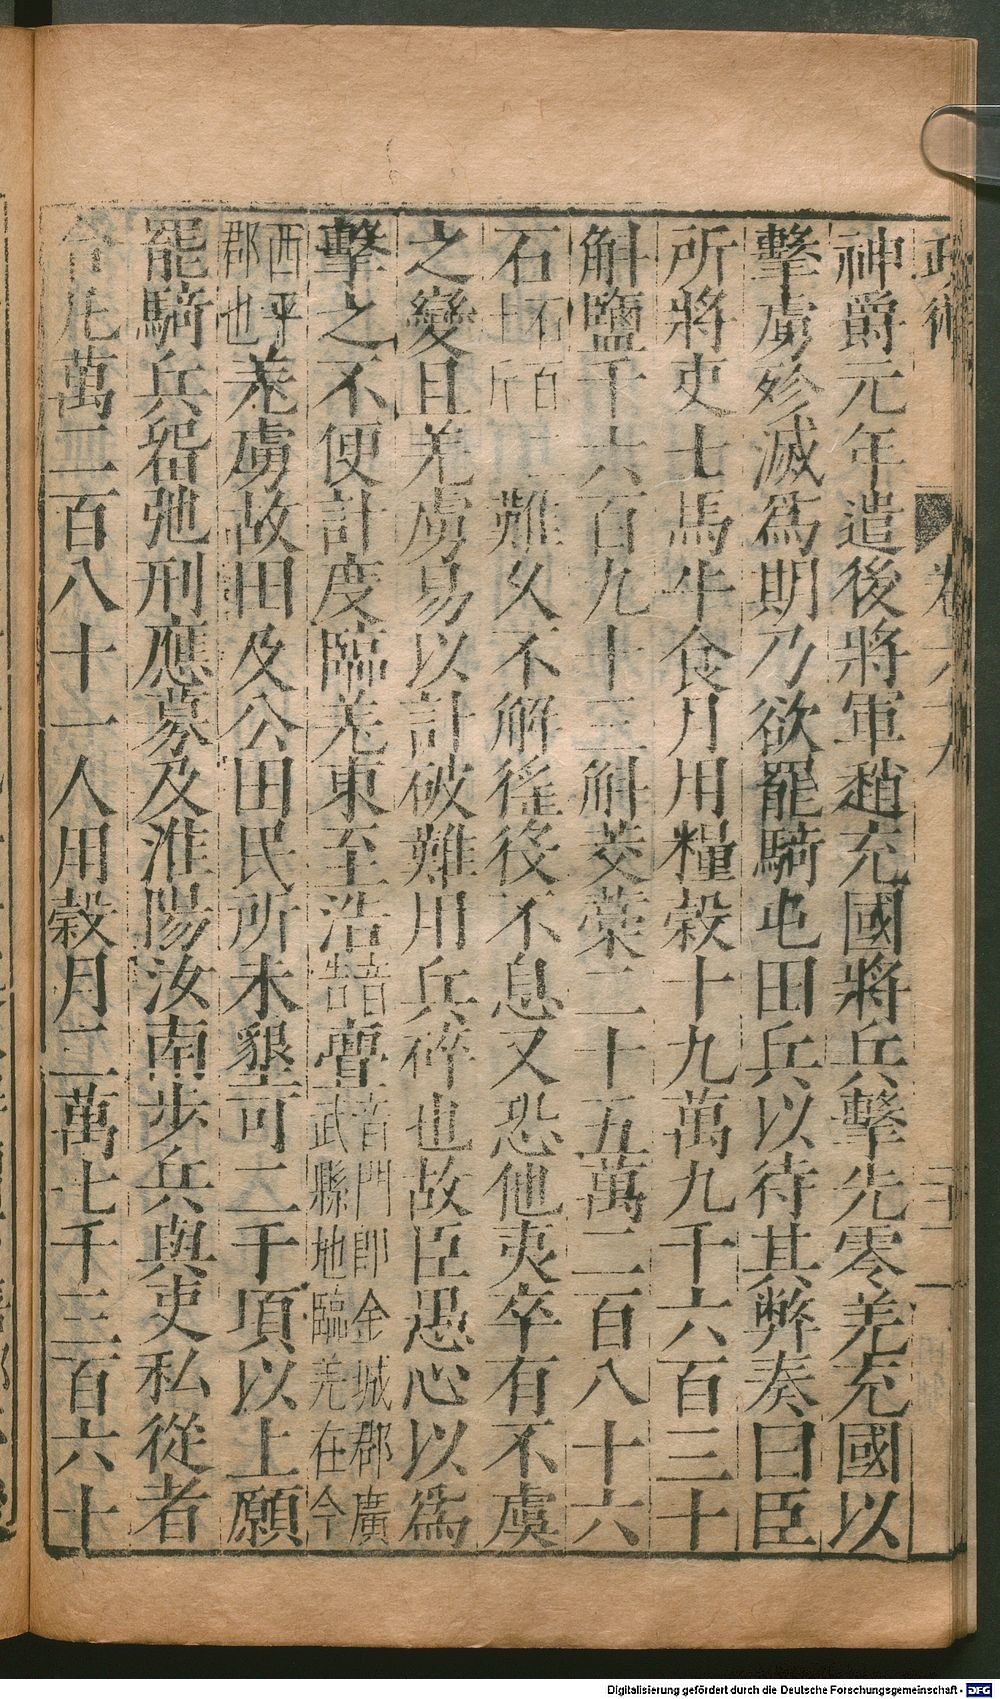 神爵元年遣後將軍趙充國將兵擊先零羌充國以
擊虜殄滅爲期乃欲罷騎屯田兵以待其弊奏曰臣
所將吏士馬牛食月用糧穀十九萬九千六百三十
斛鹽千六百九十三斛茭藁二十五萬二百八十六
石石百二十斤難久不解徭役不息又恐他夷卒有不虞
之變且羌虜易以計破難用兵碎也故臣愚心以爲
擊之不便計度臨羌東至浩音誥亹音門即金城郡廣武縣地臨羌在今
西平郡也羌虜故田及公田民所未墾可二千頃以上願
罷騎兵留弛刑應募及淮陽汝南步兵與吏私從者
合凡萬二百八十一人用穀月二萬七千三百六十
Digitalisierung gefördert durch die Deutsche Forschungsgemeinschaft - DFG